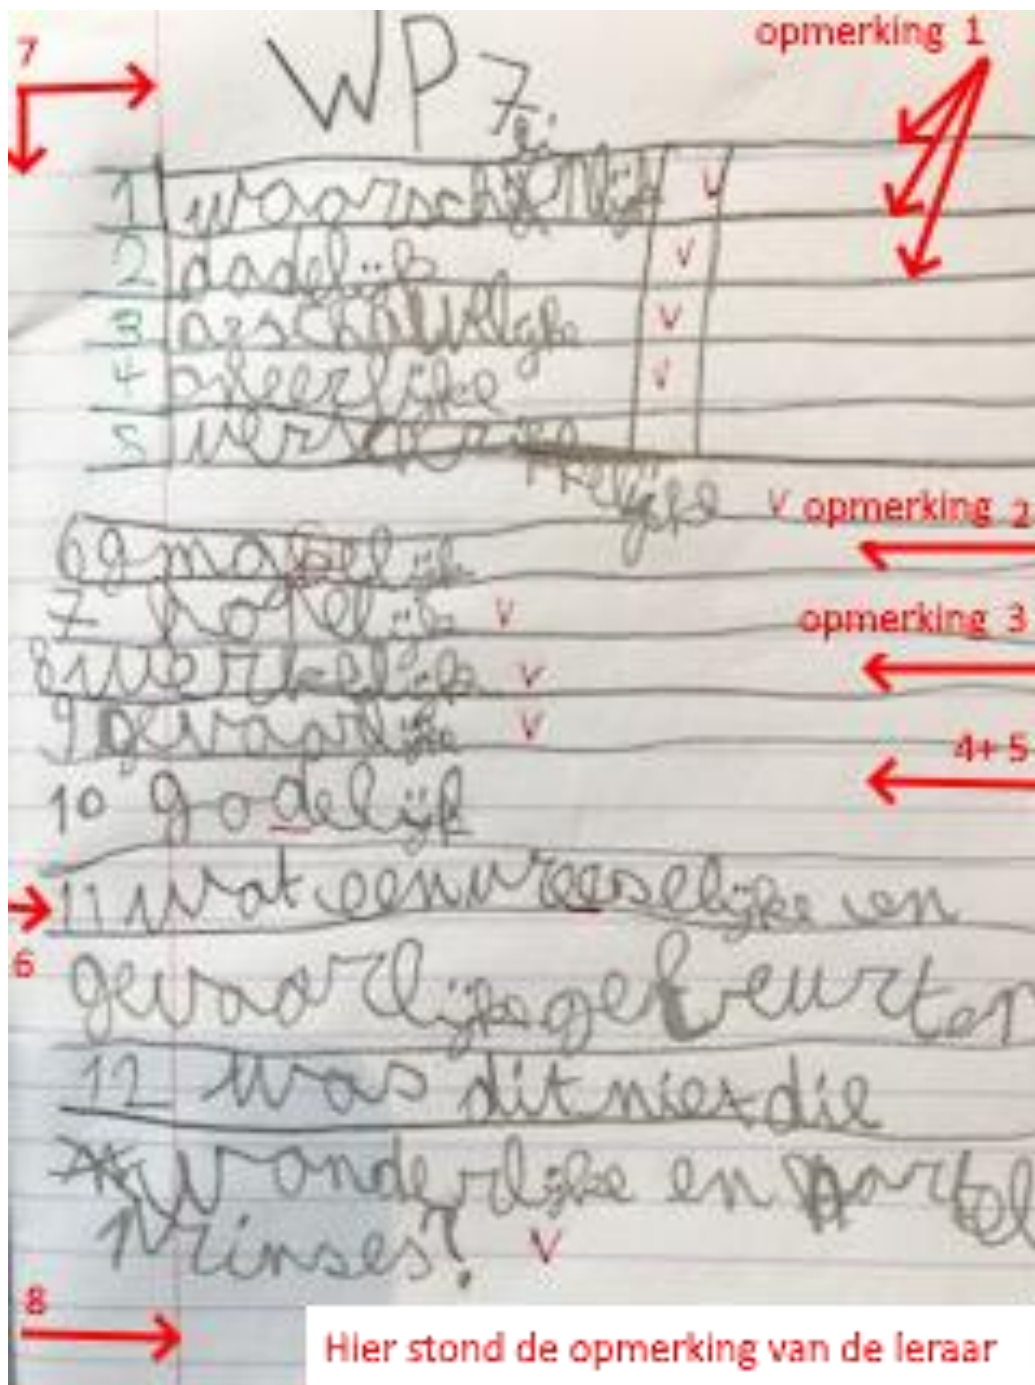 7
opmerking 1
WP 7
ei
1 waarschijnlijk v
2 dadelijk v
3 v
4 heerlijke v
5
kkelijke v opmerking 2
6 gemakelijk
7 v opmerking 3
8 werkelijk v
9 gevaarlijke v
4+ 5
10 godelijk
11 wat een vreeselijke en
6
gevaarlijke
12 was dit niet die
wonderlijke en
prinses? v
8
Hier stond de opmerking van de leraar